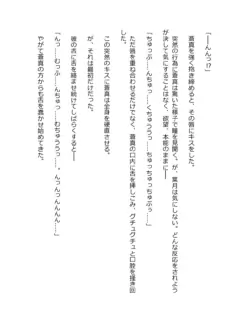 「――んんっ!?」
蒼真を強く抱き締めると、その唇にキスをした。
突然の行為に蒼真は驚いた様子で瞳を見開く。が、葉月は気にしない。どんな反応をされよう
が決して気にすることはなく、欲望、本能のままに――
「ちゅっぷ……んちゅっ……くちゅうう……ちゅっちゅっちゅぶぅ……」
ただ唇を重ね合わせるだけでなく、蒼真の口内に舌を挿しこみ、グチュグチュと口腔を掻き回
した。
この突然のキスに蒼真は全身を硬直させる。
が、それは最初だけだった。
彼の舌に舌を絡ませ続けてしばらくすると――
「んっ　むっふ　んちゅっ……むちゅううっ……。んっんっんんんん……」
やがて蒼真の方からも舌を蠢かせ始めてきた。